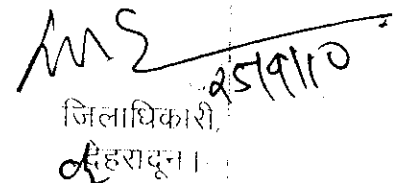 25/9/10
जिलाधिकारी,
देहरादून।